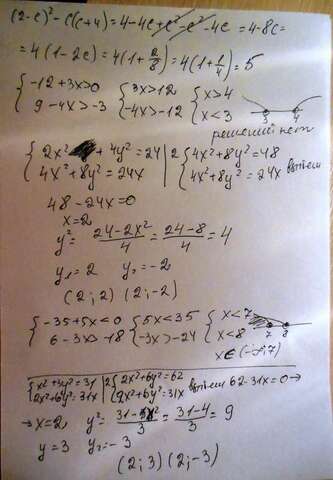 (2-c)² - c(c+4) = 4-4c+c²-c²-4c = 4-8c=
= 4(1-2c) = 4(1+2/8) = 4(1+1/4) = 5
{ -12+3x>0 { 3x>12 { x>4
{ 9-4x>-3 { -4x>-12 { x<3 3 4
решений нет
{ 2x² + 4y² = 24 |2 { 4x²+8y²=48
{ 4x²+8y²=24x { 4x²+8y²=24x вычтем
48-24x=0
x=2
y² = (24-2x²)/4 = (24-8)/4 = 4
y₁=2 y₂=-2
(2;2) (2;-2)
{ -35+5x<0 { 5x<35 { x<7 7 8
{ 6-3x>-18 { -3x>-24 { x<8
x∈(-∞;7)
{ x²+3y²=31 |2 { 2x²+6y²=62
{ 2x²+6y²=31x { 2x²+6y²=31x вычтем 62-31x=0 →
→ x=2, y² = (31-x²)/3 = (31-4)/3 = 9
y=3 y₂=-3
(2;3) (2;-3)